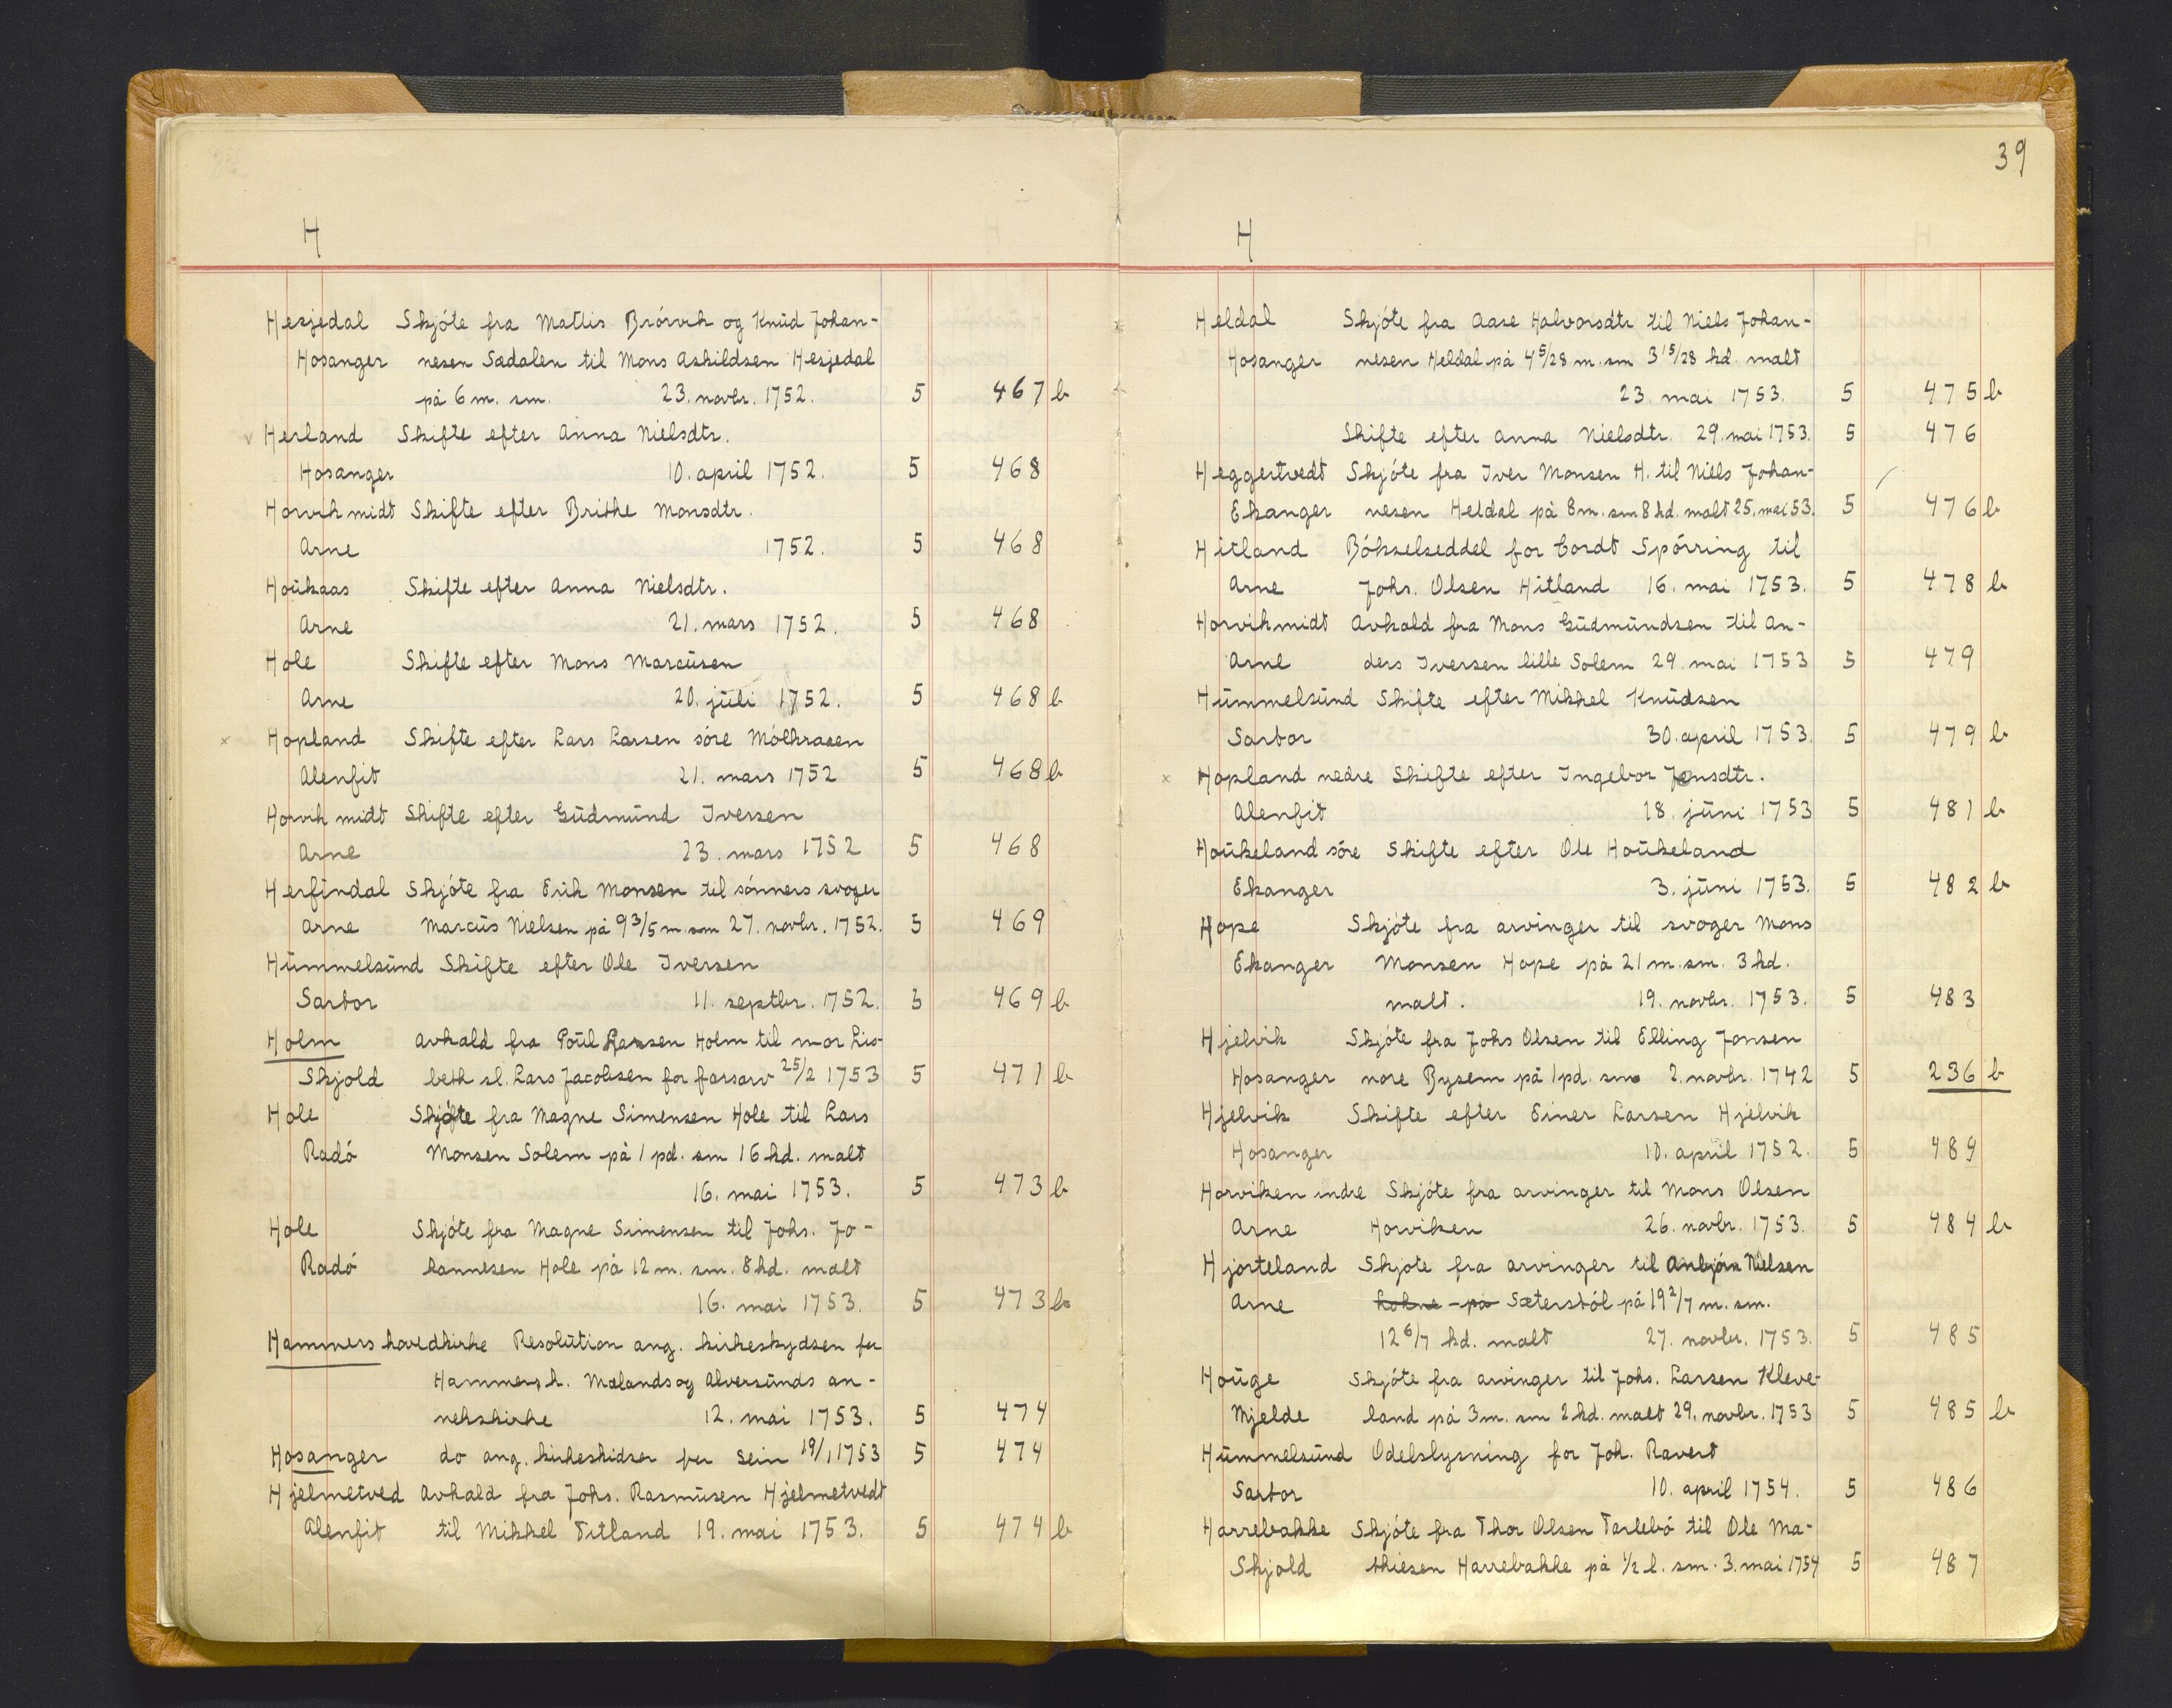 H
Hesjedal Skjóte fra Mattis Brórvik og Knüd Johan-
Hosanger nesen Sædalen til Mons Askildsen Hesjedal
på 6 m. sm. 23. novbr. 1752. 5 467 b
v Herland Skifte efter Anna Nielsdtr.
Hosanger 10. april 1752. 5 468
Horvik midt Skifte efter Brithe Monsdtr.
Arne 1752. 5 468
Hoükaas Skifte efter Anna Nielsdtr.
Arne 21. mars 1752. 5 468
Hole Skifte efter Mons Marcüsen
Arne 20. jüli 1752. 5 468 b
x Hopland Skifte efter Lars Larsen sóre Mólkraaen
Alenfit 21. mars 1752 5 468 b
Horvik midt Skifte efter Güdmünd Iversen
Arne 23. mars 1752 5 468
Herfindal Skjóte fra Erik Monsen til sónners svoger
Arne Marcüs Nielsen på 9 3/5 m. sm 27. novbr. 1752. 5 469
Hümmelsünd Skifte efter Ole Iversen
Sartor 11. septbr. 1752. 5 469 b
Holm Avkald fra Poül Hansen Holm til mor Lis-
Skjold beth sl. Lars Jacobsen for farsarv 25/2 1753 5 471 b
Hole Skjóte fra Magne Simensen Hole til Lars
Radó Monsen Solem på 1 pd. sm 16 kd. malt
16. mai 1753. 5 473 b
Hole Skjóte fra Magne Simensen til Johs. Jo-
Radó hannesen Hole på 12 m. sm. 8 kd. malt
16. mai 1753. 5 473 b
Hammers hovedkirke Resolütion ang. kirkeskydsen for
Hammers h. Mælands og Alversünds an-
nekskirke 12. mai 1753. 5 474
Hosanger do ang. kirkeskidser for Sein 19/1 1753 5 474
Hjelmetved Avkald fra Johs. Rasmüsen Hjelmetvedt
Alenfit til Mikkel Titland 19. mai 1753. 5 474 b
39
H
Heldal Skjóte fra Aase Halvorsdtr til Niels Johan-
Hosanger nesen Heldal på 4 5/28 m. sm 3 15/28 kd. malt
23. mai 1753. 5 475 b
Skifte efter Anna Nielsdtr. 29. mai 1753. 5 476
Heggertvedt Skjóte fra Iver Monsen H. til Niels Johan-
Ekanger nesen Heldal på 8 m. sm 8 kd. malt 25. mai 53. 5 476 b
Hitland Bókselseddel for Cordt Spórring til
Arne Johs. Olsen Hitland 16. mai 1753. 5 478 b
Horvik midt Avkald fra Mons Güdmündsen til An-
Arne ders Iversen lille Solem 29. mai 1753 5 479
Hümmelsünd Skifte efter Mikkel Knüdsen
Sartor 30. april 1753. 5 479 b
x Hopland nedre Skifte efter Ingebor Jensdtr.
Alenfit 18. jüni 1753 5 481 b
Hoükeland sóre Skifte efter Ole Hoükeland
Ekanger 3. jüni 1753. 5 482 b
Hope Skjóte fra arvinger til svoger Mons
Ekanger Monsen Hope på 21 m. sm. 3 kd.
malt. 19. novbr. 1753. 5 483
Hjelvik Skjóte fra Johs Olsen til Elling Jonsen
Hosanger nore Bysem på 1 pd. sm 2. novbr. 1742 5 236 b
Hjelvik Skifte efter Einer Larsen Hjelvik
Hosanger 10. april 1752. 5 484
Horviken indre Skjóte fra arvinger til Mons Olsen
Arne Horviken 26. novbr. 1753. 5 484 b
Hjorteland Skjote fra arvinger til Anbjórn Nielsen
Arne Sætersból på 19 2/7 m. sm.
12 6/7 kd. malt 27. novbr. 1753. 5 485
Hoüge Skjóte fra arvinger til Johs. Larsen Kleve-
Mjelde land på 3 m. sm 2 kd. malt 29. novbr. 1753 5 485 b
Hümmelsünd Odelslysning for Joh. Ravert
Sartor 10. april 1754. 5 486
Harrebakke Skjóte fra Thor Olsen Tarlebó til Ole Ma-
Skjold thiesen Harrebakke på 1/2 l. sm. 3. mai 1754 5 487